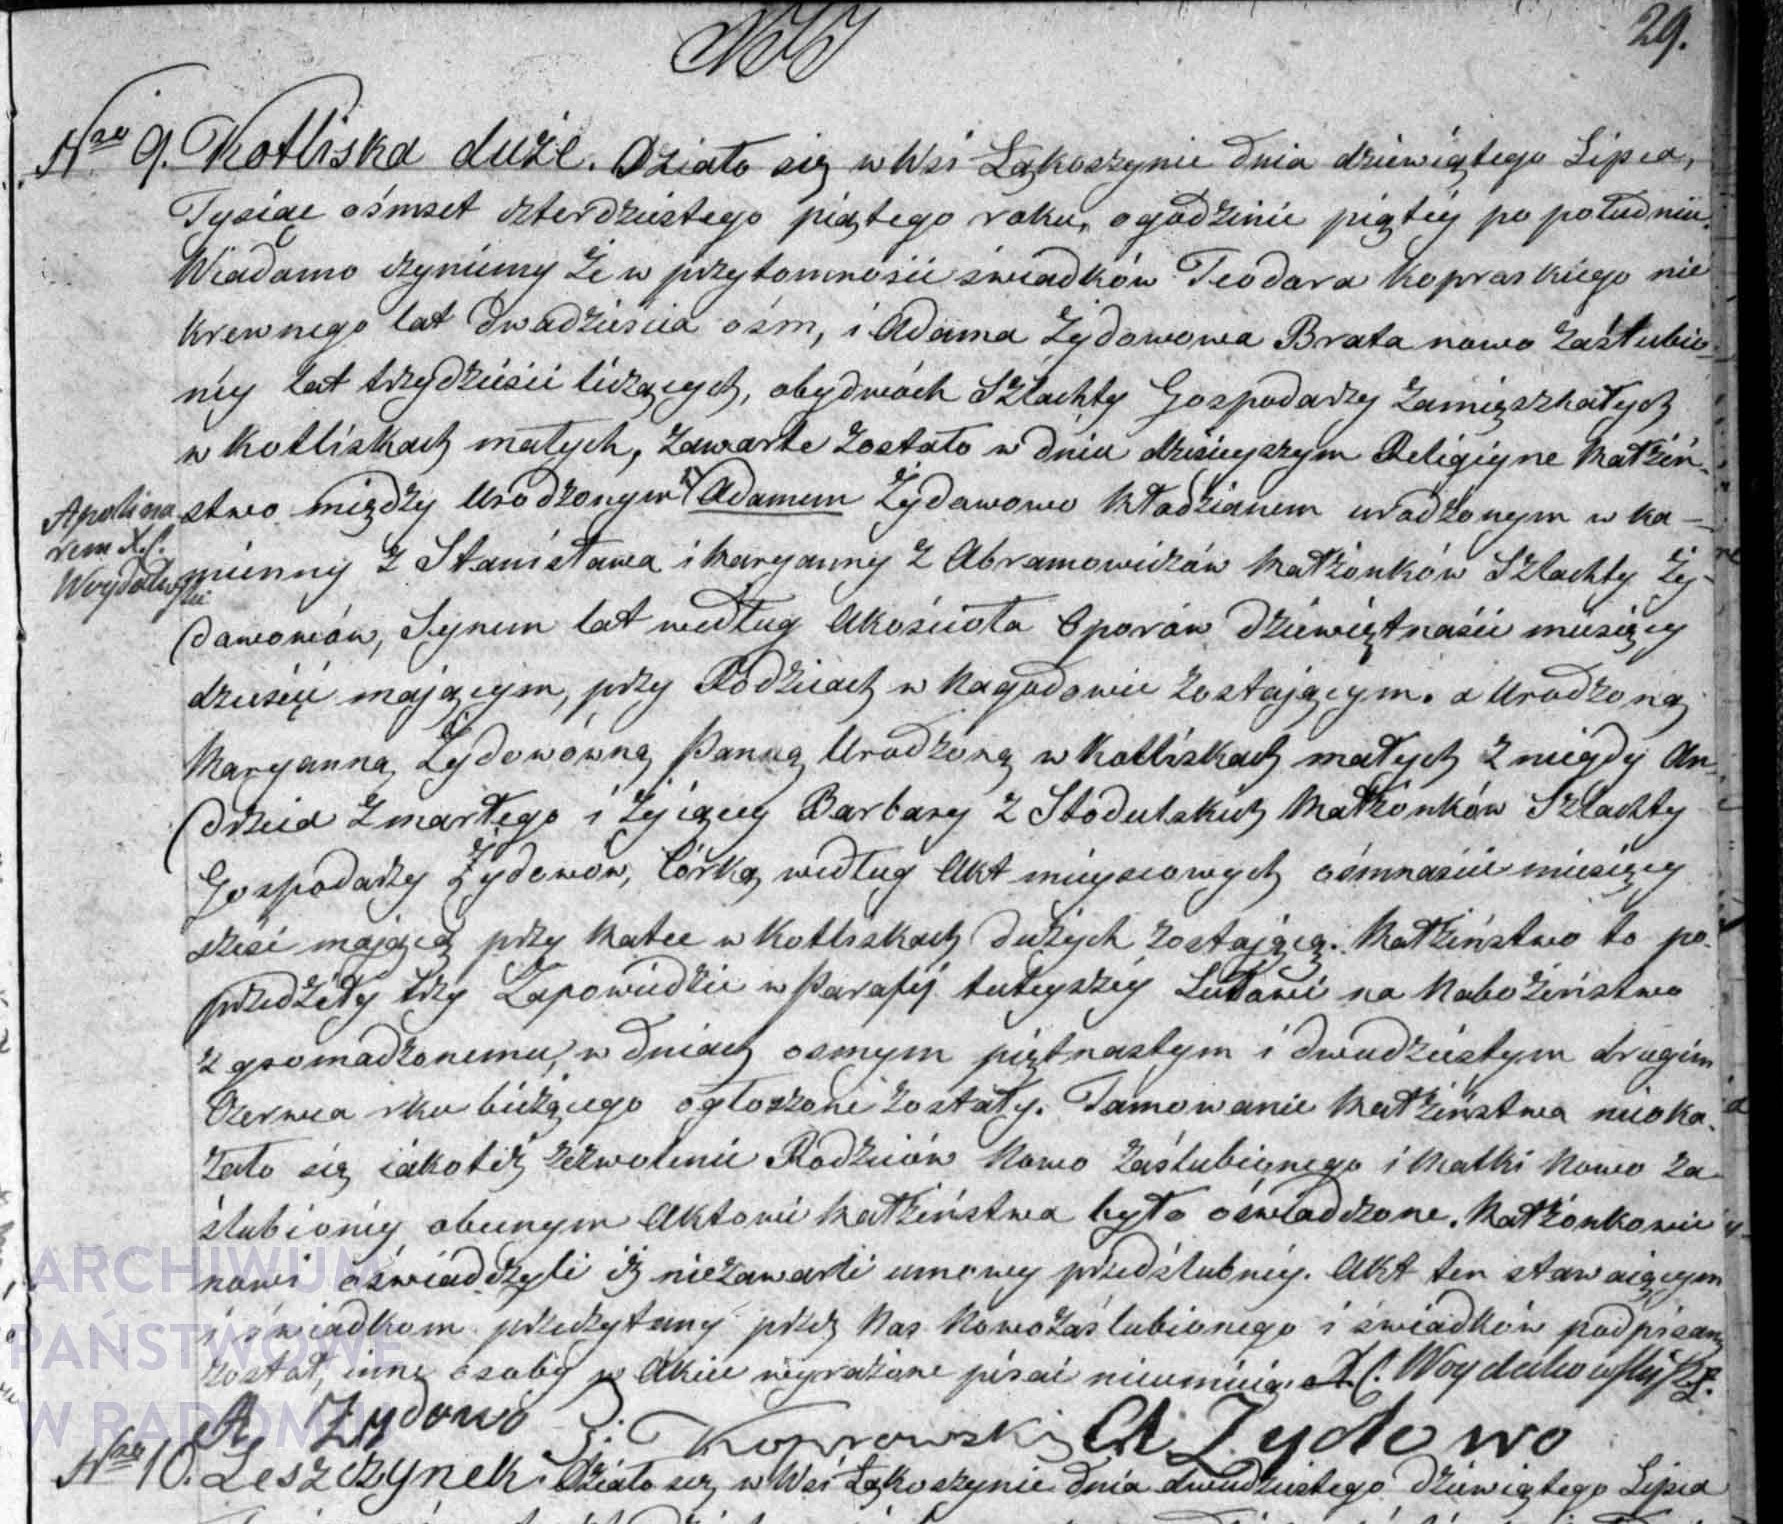 29.
Nro 9. Kotliska duże. Działo się w Wsi Łąkoszynie dnia dziewiątego Lipca,
Tysiąc ośmset czterdziestego piątego roku, o godzinie piątey po południu.
Wiadomo czyniemy że w przytomności świadków Teodora Kopraskiego nie
krewnego lat dwadzieścia ośm, i Adama Żydowowa Brata nowo zaślubio-
néy lat trzydzieści liczących, obydwóch Szlachty Gospodarzy zamięszkałych
w Kotliskach małych, zawarte zostało w dniu dzisieyszym Religiyne Małżeń-
stwo między Urodzonym Adamem Żydawowo Młodzianem urodzonym w Ka-
Apolina
rem X. J.
mienny z Stanisława i Maryanny z Abramowiczów Małżonków Szlachty Ży-
dawowów, Synem lat według Akościoła Oporów dziewiętnaście miesięcy
dziesięć mającym, przy Rodzicach w zostającym. a Urodzoną
Maryanną Żydowówną Panną Urodzoną w Kotliskach małych z niegdy An-
drzeia zmarłego i żyiącey Barbary z Stodulskich Małżonków Szlachty
Gospodarzy Żydowów, Córką według Akt mieyscowych ośmnaście miesięcy
sześć mającą przy Matce w Kotliskach dużych zostającą. Małżeństwo to po-
przedziły trzy Zapowiedzie w Parafij tuteyszéy Ludowi na Nabożeństwo
zgromadzonemu, w dniach osmym piętnastym i dwudziestym drugim
Czerwca rku bieżącego ogłoszone zostały. Tamowanie Małżeństwa nieoka-
zało się iakoteż zezwolenie Rodziców Nowo zaślubionego i Matki Nowo za-
ślubionéy obecnym Aktowi Małżeństwa było oświadczone. Małżonkowie
nowi oświadczyli iż niezawarli umowy przedślubnéy. Akt ten stawaiącym
i świadkom przeczytany przez Nas Nowozaślubionego i świadków podpisany
został, inne osoby w Akcie wyrażone pisać nieumieią.
A Zydowo T. Koprowski A Zydowo
Nro 10. Leszczynek. Działo się w Wsi Łąkoszynie dnia dwudziestego dziewiątego Lipca
ARCHIWUM
PAŃSTWOWE
W RADOMIU